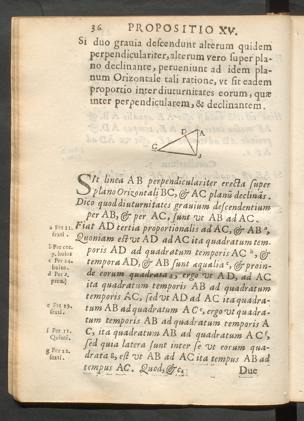 36 PROPOSITIO XV.
Si duo grauia descendunt alterum quidem
perpendiculariter, alterum vero super pla-
no declinante, perueniunt ad idem pla-
num Orizontale tali ratione, vt sit eadem
proportio inter diuturnitates eorum, quæ
inter perpendicularem, & declinantem.
D A
C
SIt linea AB perpendiculariter erecta super
plano Orizontali BC, & AC planũ declinãs.
Dico quod diuturnitates grauium descendentium
per AB, & per AC, sunt vt AB ad AC.
Fiat AD tertia proportionalis ad AC, & AB
Quoniam est vt AD ad AC ita quadratum tem-
poris AD ad quadratum temporis AC, &
tempora AD, & AB sunt æqualia, & proin-
de eorum quadrata; ergo vt AD, ad AC
ita quadratum temporis AB ad quadratum
temporis AC, sed vt AD ad AC ita quadra-
tum AB ad quadratum AC, ergo vt quadra-
tum temporis AB ad quadratum temporis A
C, ita quadratum AB ad quadratum AC,
sed quia latera sunt inter se vt eorum qua-
drata, est vt AB ad AC ita tempus AB ad
tempus AC. Quod, &c.
Due
a Per 11.
sexti.
b Per
huius
c Per
huius.
d Per
e Per
sexti.
f Per 11.
Quinti.
g Per 22.
sexti.